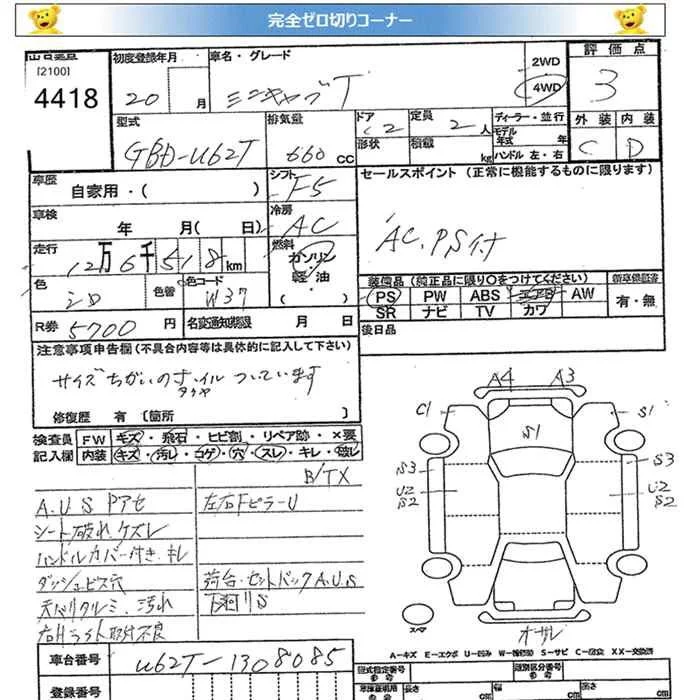 完全ゼロ切りコーナー
[2100]
4418
初度登録年月
20 月
車名・グレード
ミニキャブT
2WD
4WD
評価点
3
型式
GBD-U62T
排気量
660 CC
ドア
2
形状
定員
2人
積載
kg
ディーラー・並行
モデル年式 年
ハンドル 左・右
外装
C
内装
D
車歴
自家用・( )
シフト
F5
セールスポイント (正常に機能するものに限ります)
AC, PS付
車検
年 月( 日)
冷房
AC
走行
12万6千518km
燃料
ガソリン
軽・油
( )
色
シロ
色替
色コード
W37
装備品 (純正品に限り○をつけてください)
PS PW ABS エアB AW
SR ナビ TV カワ
新車保証書
有・無
R券
5700円
名変通知期限 月 日
後日品
注意事項申告欄 (不具合内容等は具体的に記入して下さい)
サイズちがいのホイルついています
タイヤ
修復歴 有 [箇所 ]
検査員
記入欄
FW キズ・飛石・ヒビ割・リペア跡・×要
内装 キズ・汚レ・コゲ・穴・スレ・キレ・破レ
B/TX
A.U.S Pアセ
左右Fピラー U
シート破れ.ケズレ
ハンドルカバー付き.キレ
ダッシュビス穴
荷台・セットバックA.U.S
天バリタルミ.汚れ
下廻りS
右Hライト取付不良
A4
A3
C1
S1
S1
S3
S3
U2
S2
U2
S2
スペア
オーサビ
A-キズ E-エクボ U-凹み W-補修跡 S-サビ C-腐食 XX-交換済
車台番号
U62T-1308085
登録番号
型式指定番号
類別区分番号
長さ cm
幅 cm
高さ cm